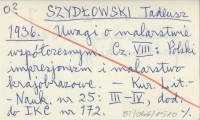 O2 SZYDŁOWSKI Tadeusz
1936. Uwagi o malarstwie
współczesnym. Cz. VIII: Polski
impresjonizm i malarstwo
krajobrazowe. — Kur. Lit.-
-Nauk. nr 25: III-IV, dod.
do IKC nr 172.